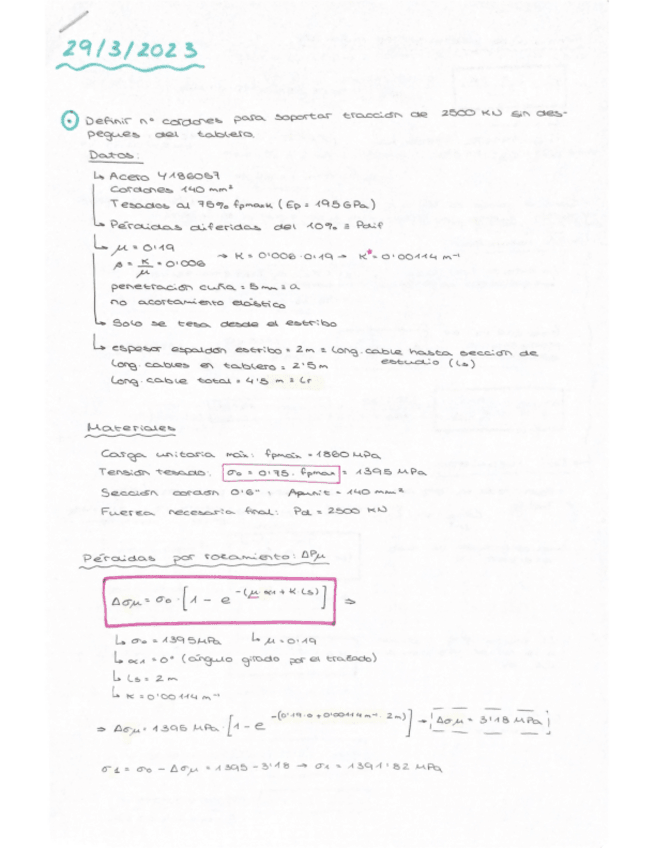 29/3/2023
Definir nº cordones para soportar tracción de 2500 KN sin des-
pegues del tablero
Datos:
↳ Acero Y1860S7
Cordones 140 mm²
Tesados al 75% fpmaxk (Ep = 195GPa)
↳ Pérdidas diferidas del 10% = Pdif
↳ μ = 0'19
β = K/μ = 0'006 → K = 0'006·0'19 → K* = 0'00114 m⁻¹
penetración cuña = 5mm = a
no acortamiento elástico
↳ Solo se tesa desde el estribo
↳ espesor espaldón estribo = 2m = long. cable hasta sección de
estudio (Ls)
long. cables en tablero = 2'5m
long. cable total = 4'5 m = Lr
Materiales
Carga unitaria máx: fpmáx = 1860 MPa
Tensión tesado: σ₀ = 0'75 · fpmax = 1395 MPa
Sección cordón 0'6": Apunit = 140 mm²
Fuerza necesaria final: Pd = 2500 KN
Pérdidas por rozamiento: ΔPμ
Δσμ = σ₀ · [1 - e^-(μ·α1 + K·Ls)] ⇒
↳ σ₀ = 1395MPa ↳ μ = 0'19
↳ α1 = 0º (ángulo girado por el trazado)
↳ Ls = 2m
↳ K = 0'00114 m⁻¹
⇒ Δσμ = 1395 MPa · [1 - e^-(0'19·0 + 0'00114 m⁻¹ · 2m)] → Δσμ = 3'18 MPa
σ1 = σ₀ - Δσμ = 1395 - 3'18 → σ1 = 1391'82 MPa